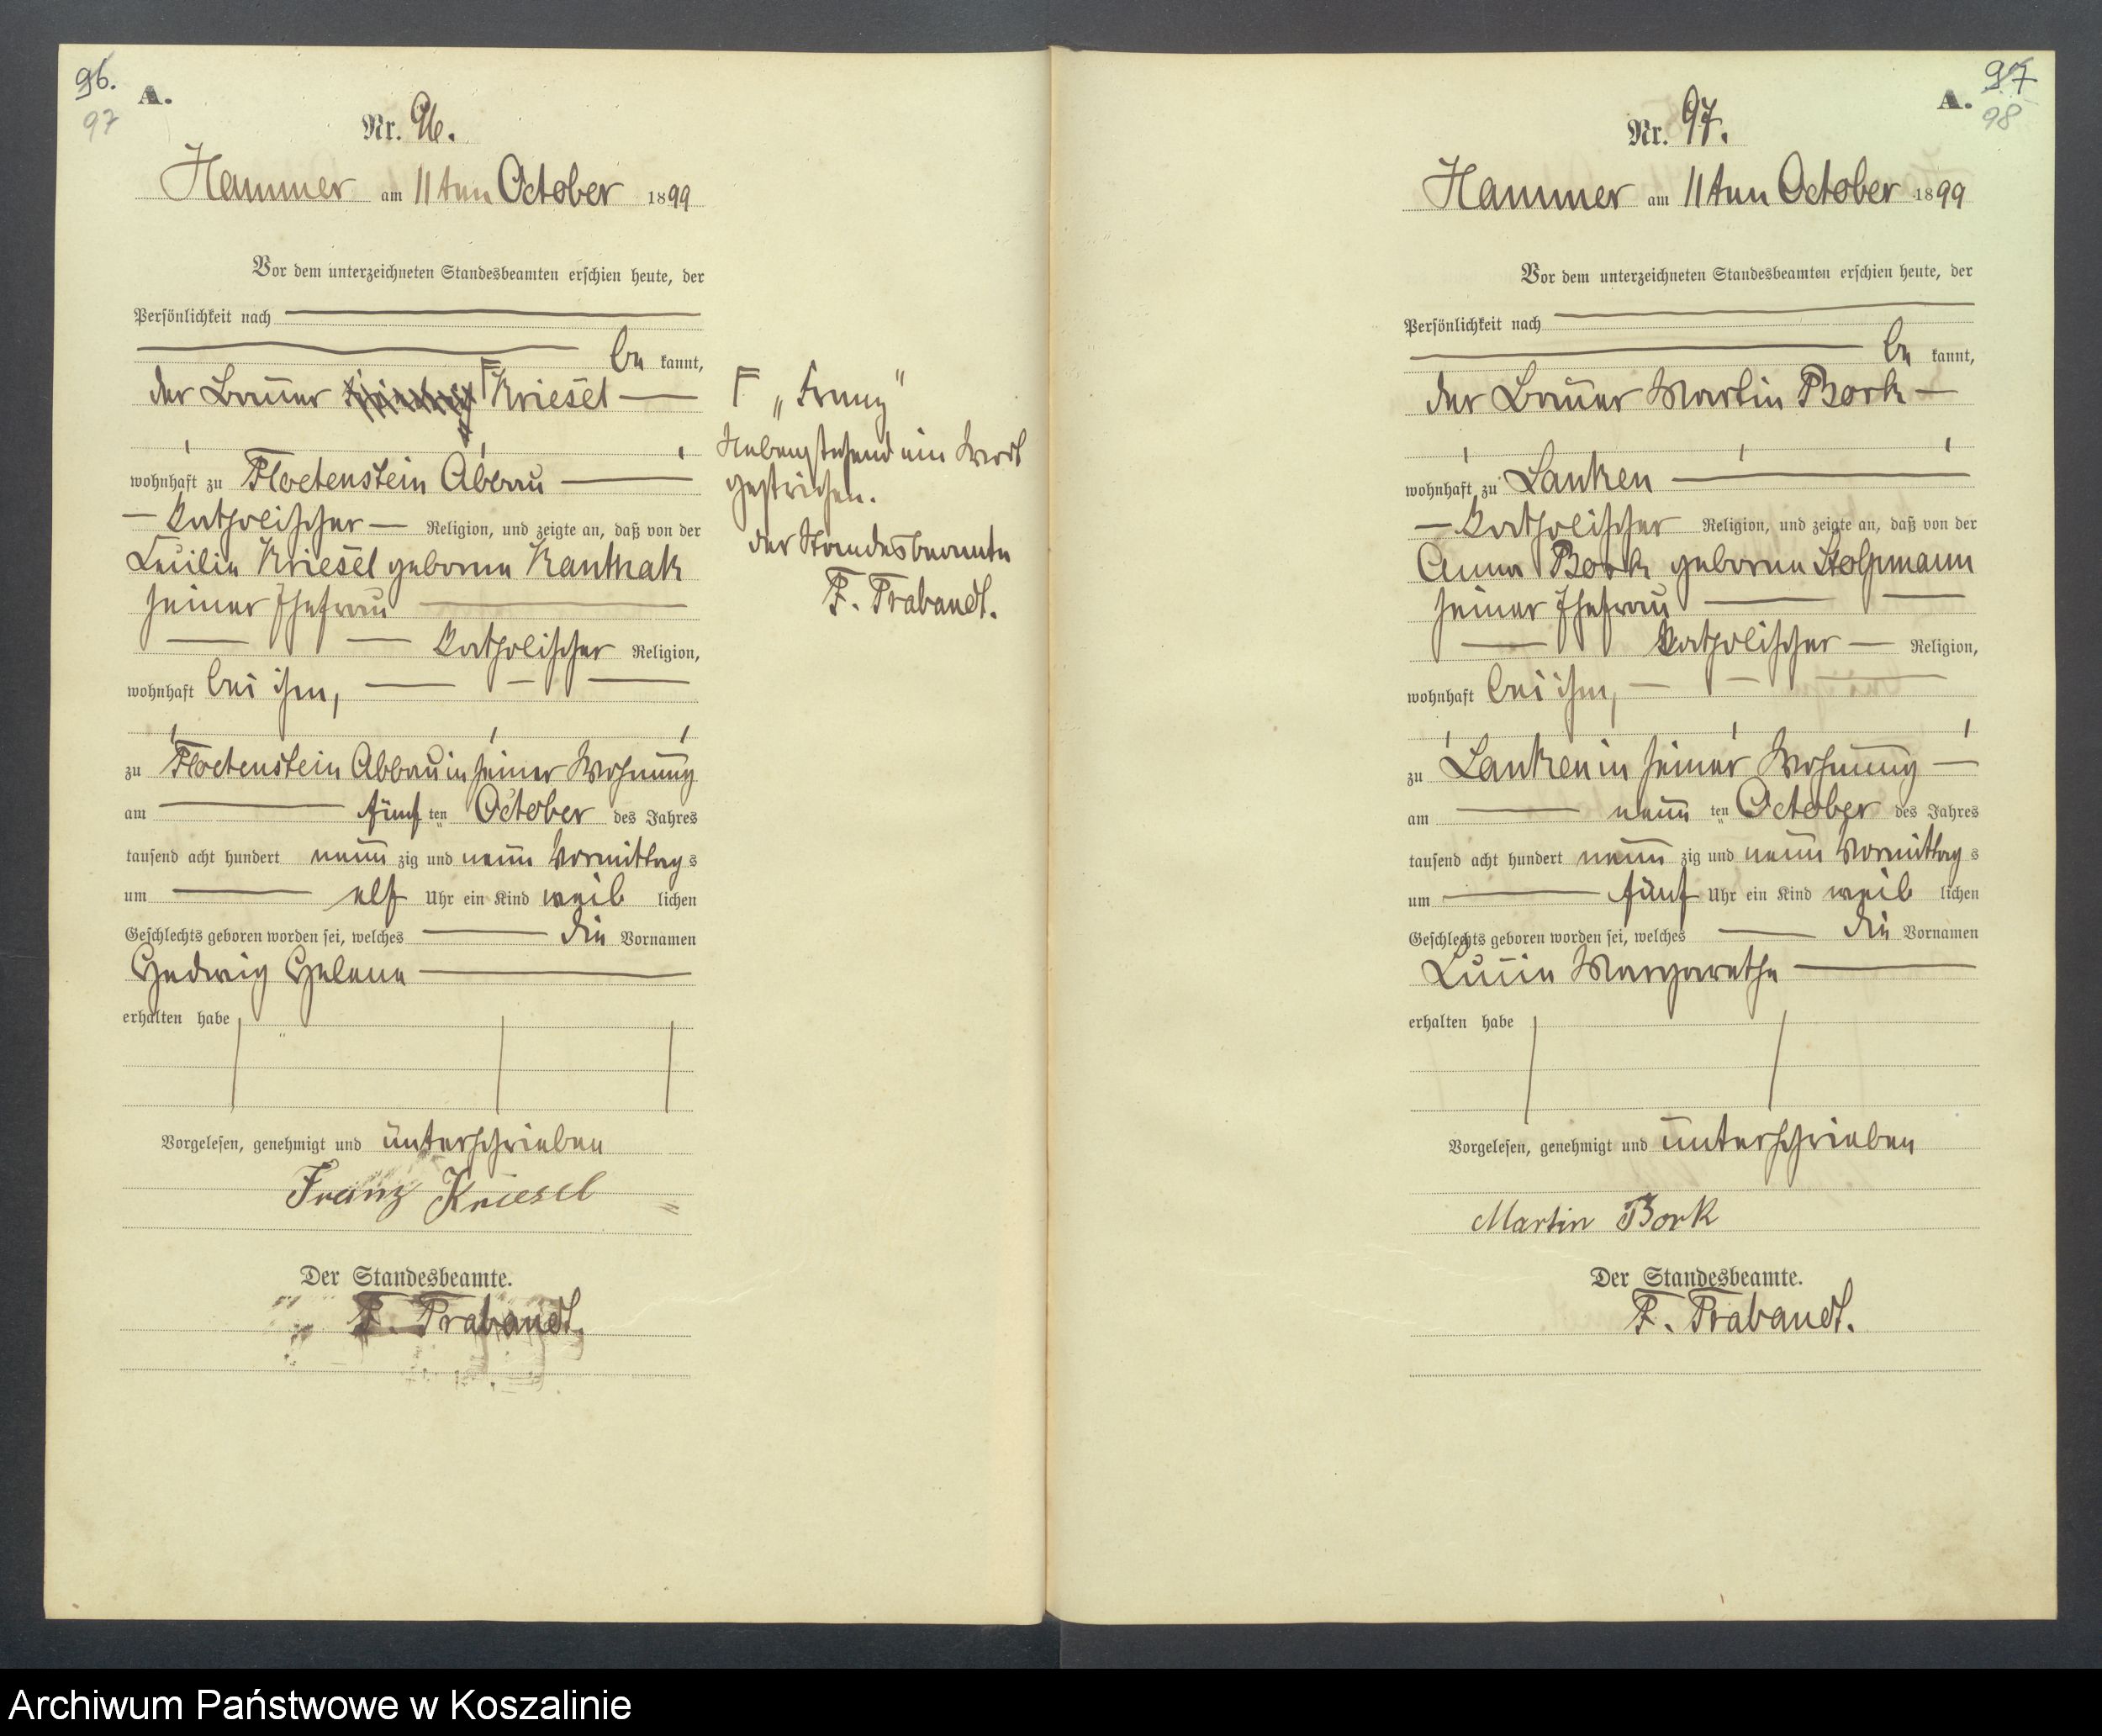 96.
97
A.
Nr. 96.
Hammer am 11ten October 1899
Vor dem unterzeichneten Standesbeamten erschien heute, der
Persönlichkeit nach
be kannt,
der Bauer Kriesel
wohnhaft zu Floetenstein Abbau
katholischer Religion, und zeigte an, daß von der
Cecilie Kriesel geborene Kanthak
seiner Ehefrau
katholischer Religion,
wohnhaft bei ihm,
zu Floetenstein Abbau in seiner Wohnung
am fünf ten October des Jahres
tausend acht hundert neun zig und neun Vormittag s
um elf Uhr ein Kind weib lichen
Geschlechts geboren worden sei, welches die Vornamen
Hedwig Helene
erhalten habe
Vorgelesen, genehmigt und unterschrieben
Franz Kriesel
Der Standesbeamte.
F. Trabandt.
F „Franz"
Nebenstehend ein Wort
gestrichen.
der Standesbeamte
F. Trabandt.
97
98
A.
Nr. 97.
Hammer am 11ten October 1899
Vor dem unterzeichneten Standesbeamten erschien heute, der
Persönlichkeit nach
be kannt,
der Bauer Martin Bork
wohnhaft zu Lanken
katholischer Religion, und zeigte an, daß von der
Anna Bork geborene Stolpmann
seiner Ehefrau
katholischer Religion,
wohnhaft bei ihm,
zu Lanken in seiner Wohnung
am neun ten October des Jahres
tausend acht hundert neun zig und neun Vormittag s
um fünf Uhr ein Kind weib lichen
Geschlechts geboren worden sei, welches die Vornamen
Lucie Margarethe
erhalten habe
Vorgelesen, genehmigt und unterschrieben
Martin Bork
Der Standesbeamte.
F. Trabandt.
Archiwum Państwowe w Koszalinie